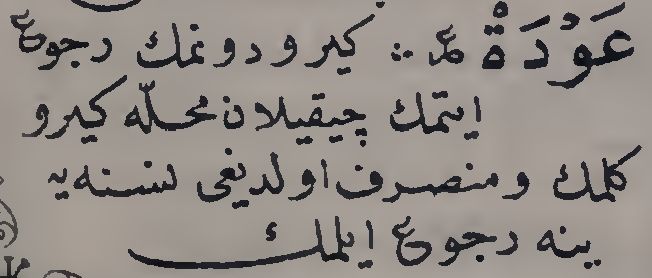 عَوْدَةْ ع :: كيرو دونمك رجوع
ايتمك چيقيلان محلّه كيرو
كلمك ومنصرف اولديغى نسنه يه
ينه رجوع ايلمك